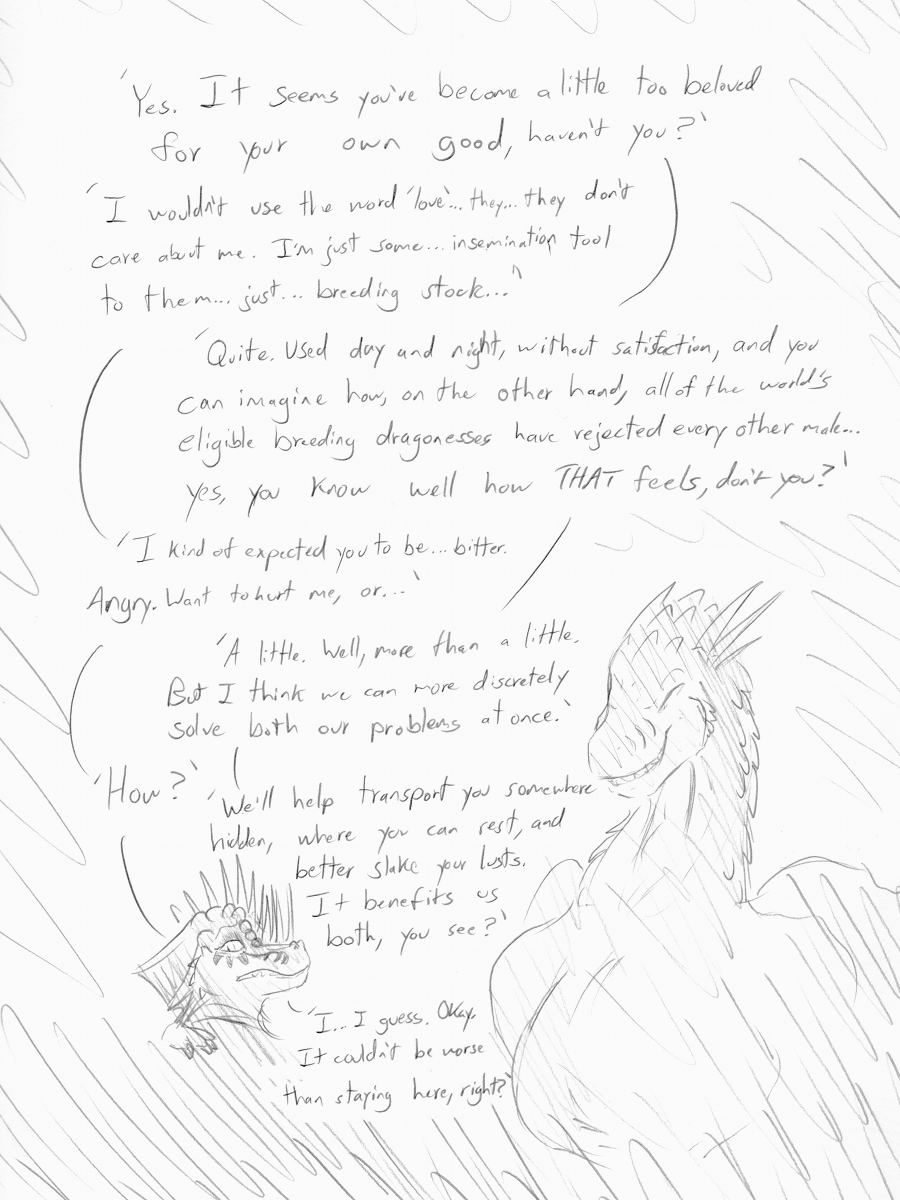 'Yes. It seems you've become a little too beloved
for your own good, haven't you?'
'I wouldn't use the word 'love'... they... they don't
care about me. I'm just some... insemination tool
to them... just... breeding stock...'
'Quite. Used day and night, without satisfaction, and you
can imagine how, on the other hand, all of the world's
eligible breeding dragonesses have rejected every other male...
yes, you know well how THAT feels, don't you?'
'I kind of expected you to be... bitter.
Angry. Want to hurt me, or...'
'A little. Well, more than a little.
But I think we can more discretely
solve both our problems at once.'
'How?'
'We'll help transport you somewhere
hidden, where you can rest, and
better slake your lusts.
It benefits us
both, you see?'
'I... I guess. Okay.
It couldn't be worse
than staying here, right?'